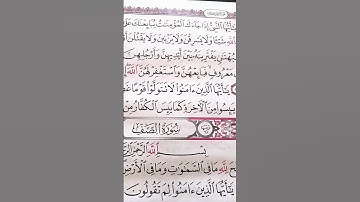 يَٰٓأَيُّهَا ٱلنَّبِىُّ إِذَا جَآءَكَ ٱلْمُؤْمِنَٰتُ يُبَايِعْنَكَ عَلَىٰٓ
شَيْـًٔا وَلَا يَسْرِقْنَ وَلَا يَزْنِينَ وَلَا يَقْتُلْنَ
بِبُهْتَٰنٍ يَفْتَرِينَهُۥ بَيْنَ أَيْدِيهِنَّ وَأَرْجُلِهِنَّ
مَعْرُوفٍ فَبَايِعْهُنَّ وَٱسْتَغْفِرْ لَهُنَّ ٱللَّهَ
يَٰٓأَيُّهَا ٱلَّذِينَ ءَامَنُوا۟ لَا تَتَوَلَّوْا۟ قَوْمًا
يَئِسُوا۟ مِنَ ٱلْءَاخِرَةِ كَمَا يَئِسَ ٱلْكُفَّارُ مِنْ
سُورَةُ ٱلصَّفِّ
بِسْمِ ٱللَّهِ ٱلرَّحْمَٰنِ
لِلَّهِ مَا فِى ٱلسَّمَٰوَٰتِ وَمَا فِى ٱلْأَرْضِ
يَٰٓأَيُّهَا ٱلَّذِينَ ءَامَنُوا۟ لِمَ تَقُولُونَ